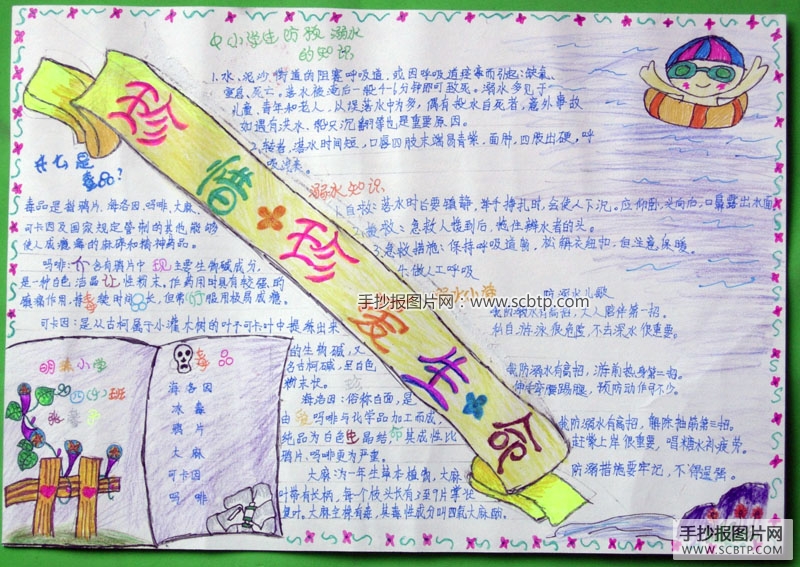 中小学生防救溺水
的知识
1.水、泥沙、街道的阻塞呼吸道,或因呼吸道痉挛而引起:缺氧、
窒息、死亡,落水被淹后一般4-6分钟即可致死。溺水多见于
儿童、青年和老人,从误落水中为多,偶有投水自死者,意外事故
如遇有洪水、船只沉翻等也是重要原因。
2.轻者,落水时间短,口唇四肢末端易青紫,面肿,四肢出硬,呼
吸
溺水知识
1.自救:落水时已要镇静,举手挣扎时,会使人下沉。应仰面,头向后,口鼻露出水面
急救人慢到后,抱住溺水者的头。
3.急救措施:保持呼吸道
但注意保暖
4.做人工呼吸
什么是
毒品?
毒品是指鸦片、海洛因、吗啡、大麻、
可卡因及国家规定管制的其他能够
使人成瘾癖的麻醉和精神药品。
吗啡:介含有鸦片中现主要生物碱成分,
是一种白色洁晶让性粉末。作药用时具有较强的
镇痛作用,持毒
临用极易成瘾。
可卡因:是从古柯属于小灌木树的叶于可卡叶中提炼出来
的生物碱,又
名古柯碱,呈白色
粉末状。
海洛因:俗称白面,是
由
吗啡与化学品加工而成,
纯品为白色
晶结
其成性比
鸦片、吗啡更为严重。
大麻为一年生草本植物,大麻
叶带有长柄,每个枝头长有3至7片掌状
复叶。大麻全株有毒,其毒性成分叫四氢大麻酚。
珍惜·珍爱生·命
防溺水儿歌
我防溺水有高招,大人陪伴第一招。
私自游泳很危险,不去深水很重要。
我防溺水有高招,游前热身第二招。
伸手弯腰踢腿,预防动作可不少。
我防溺水有高招,解除抽筋第三招。
赶紧上岸很重要,喝点糖水补疲劳。
防溺措施要牢记,不得逞强。
明
小学
四(4)班
张
毒品
海洛因
冰毒
鸦片
大麻
可卡因
吗啡
手抄报图片网:www.scbtp.com
手抄报图片网
WWW.SCBTP.COM